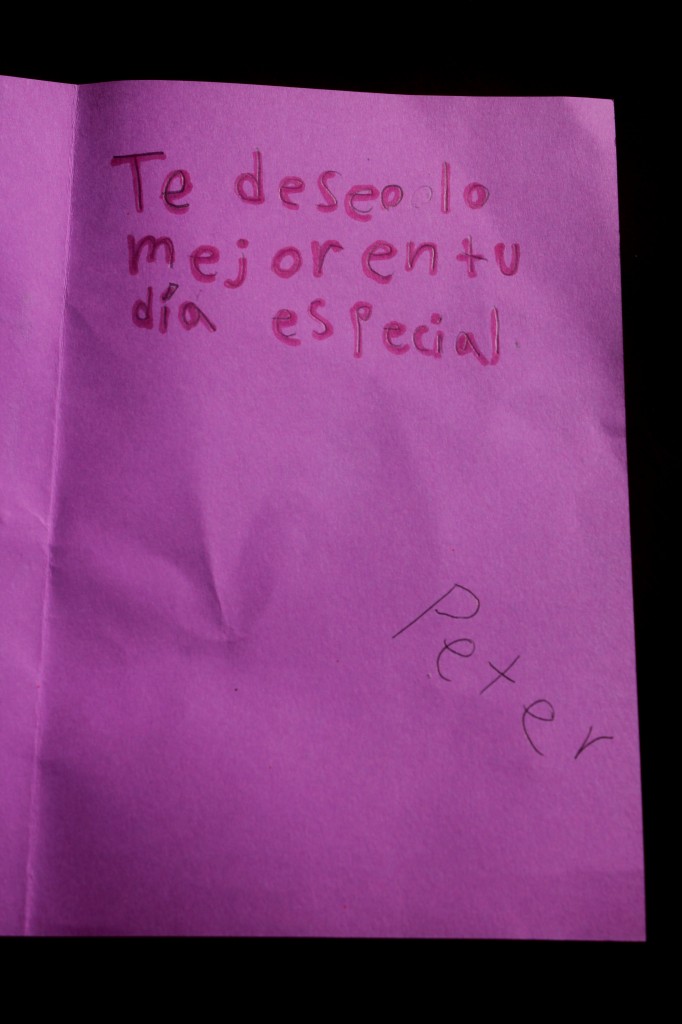 Te deseo lo
mejor en tu
día especial
Peter